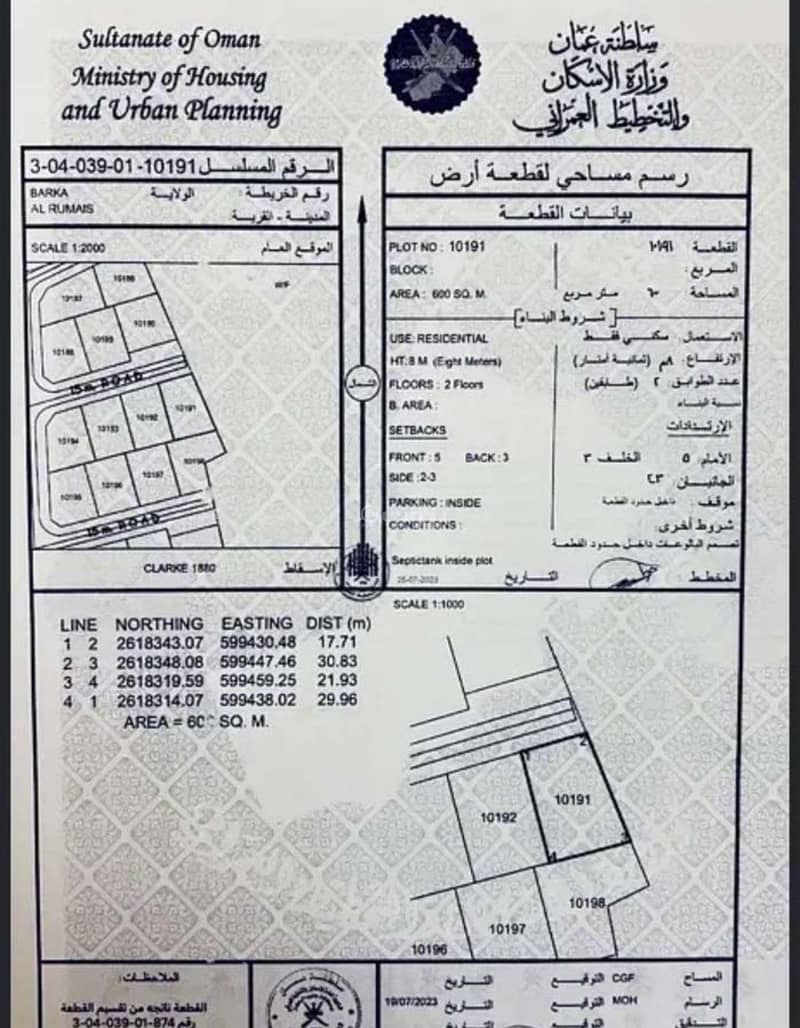 Sultanate of Oman
Ministry of Housing
and Urban Planning
سلطنة عمان
وزارة الإسكان
والتخطيط العمراني
3-04-039-01-10191 الرقم المسلسل
BARKA الولاية رقم الخريطة :
AL RUMAIS المدينة - القرية
SCALE 1:2000 الموقع العام
10188
10187
10190
10189
10186
15m ROAD
10191
10192
10193
10194
10198
10197
10196
10195
15m ROAD
CLARKE 1880 الإسقاط
الشمال
رسم مساحي لقطعة أرض
بيانات القطعة
PLOT NO : 10191 القطعة ١٠١٩١
BLOCK : المربع :
AREA : 600 SQ. M. المساحة ٦٠٠ متر مربع
[شروط البناء]
USE: RESIDENTIAL الاستعمال سكني فقط
HT: 8 M (Eight Meters) الإرتفاع: ٨م (ثمانية أمتار)
FLOORS : 2 Floors عدد الطوابق ٢ (طابقين)
B. AREA : نسبة البناء
SETBACKS الإرتدادات
FRONT : 5 BACK : 3 الأمام: ٥ الخلف ٣
SIDE :2-3 الجانبان ٢-٣
PARKING : INSIDE موقف: داخل حدود القطعة
CONDITIONS : شروط أخرى:
تصمم البالوعات داخل حدود القطعة
Septictank inside plot
25-07-2023 التاريخ المخطط
SCALE 1:1000
LINE NORTHING EASTING DIST (m)
1 2 2618343.07 599430.48 17.71
2 3 2618348.08 599447.46 30.83
3 4 2618319.59 599459.25 21.93
4 1 2618314.07 599438.02 29.96
AREA = 600 SQ. M.
1
2
10191
10192
3
4
10198
10197
10196
الملاحظات:
القطعة ناتجه من تقسيم القطعة
رقم 3-04-039-01-874
سلطنة عمان
المساح CGF التوقيع التاريخ
الرسام MOH التوقيع التاريخ 19/07/2023